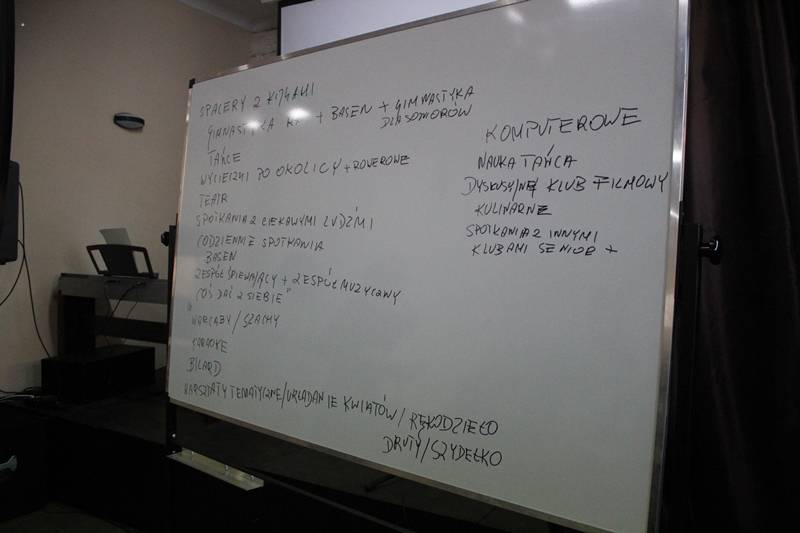 SPACERY Z KIJKAMI
GIMNASTYKA + BASEN + GIMNASTYKA
DLA SENIORÓW
TAŃCE
WYCIECZKI PO OKOLICY + ROWEROWE
TEATR
SPOTKANIA Z CIEKAWYMI LUDŹMI
CODZIENNIE SPOTKANIA
BASEN
ZESPÓŁ ŚPIEWAJĄCY + ZESPÓŁ MUZYCZNY
"COŚ DAĆ Z SIEBIE"
WARCABY / SZACHY
KARAOKE
BILARD
WARSZTATY TEMATYCZNE/UKŁADANIE KWIATÓW / RĘKODZIEŁO
DRUTY/SZYDEŁKO
KOMPUTEROWE
NAUKA TAŃCA
DYSKUSYJNE KLUB FILMOWY
KULINARNE
SPOTKANIA Z INNYMI
KLUBAMI SENIOR +